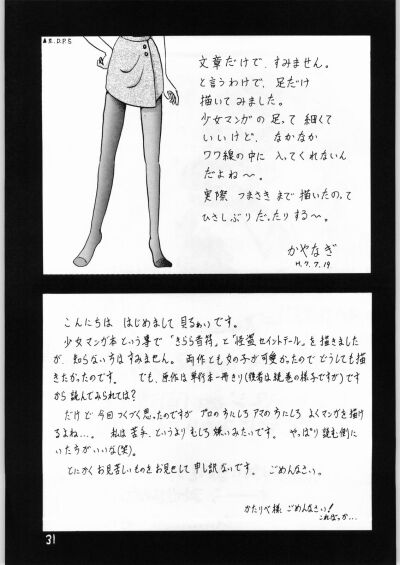 文章だけで、すみません。
と言うわけで、足だけ
描いてみました。
少女マンガの足って細くて
いいけど、なかなか
ワク線の中に入ってくれないん
だよね〜。
実際つまさきまで描いたのって
ひさしぶりだったりする〜。
かやなぎ
H.7.7.19
こんにちは はじめまして 貝るぁぃです。
少女マンガ本という事で「きらら音符」と「怪盗セイントテール」を描きました
が、知らない方はすみません。両作とも女の子が可愛かったのでどうしても描
きたかったのです。 でも、原作は単行本一冊きり(後者は続巻の様子ですが)です
から読んでみられては?
だけど今回つくづく思ったのですが プロの方にしろ アマの方にしろ よくマンガを描け
るよね…。 私は苦手、というよりむしろ嫌いみたいです。 やっぱり読む側に
いた方がいいな(笑)。
とにかくお見苦しいものをお見せして申し訳ないです。 ごめんなさい。
かたりべ様 ごめんなさい!
こればっか…
31